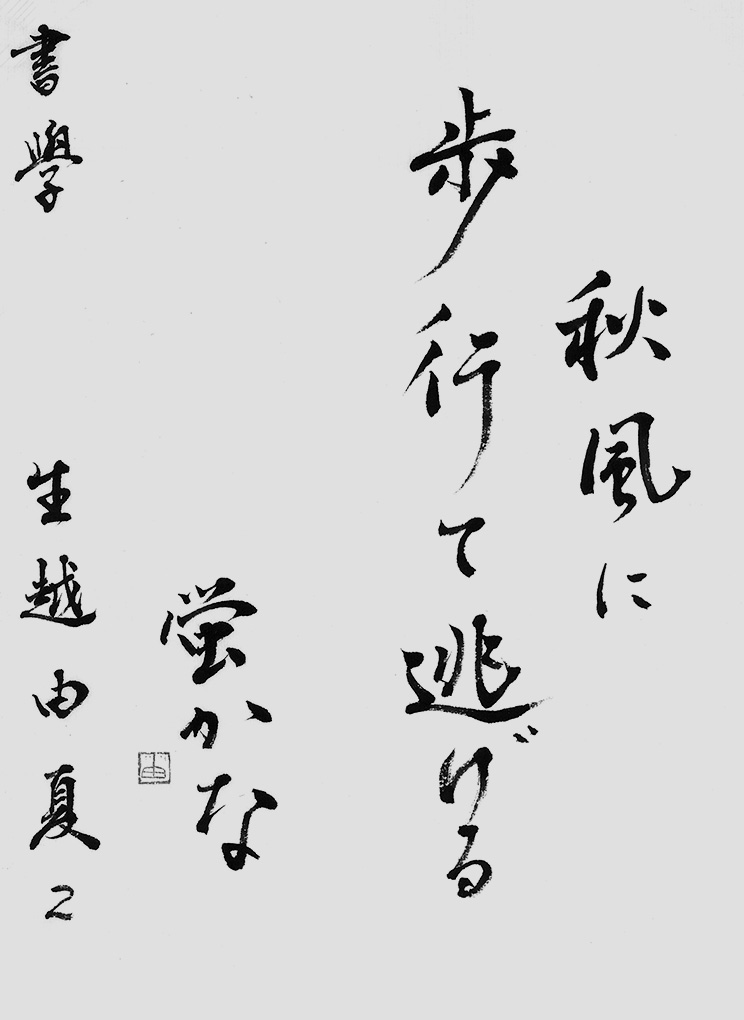 秋風に
歩行て逃げる
蛍かな
書學 生越由夏